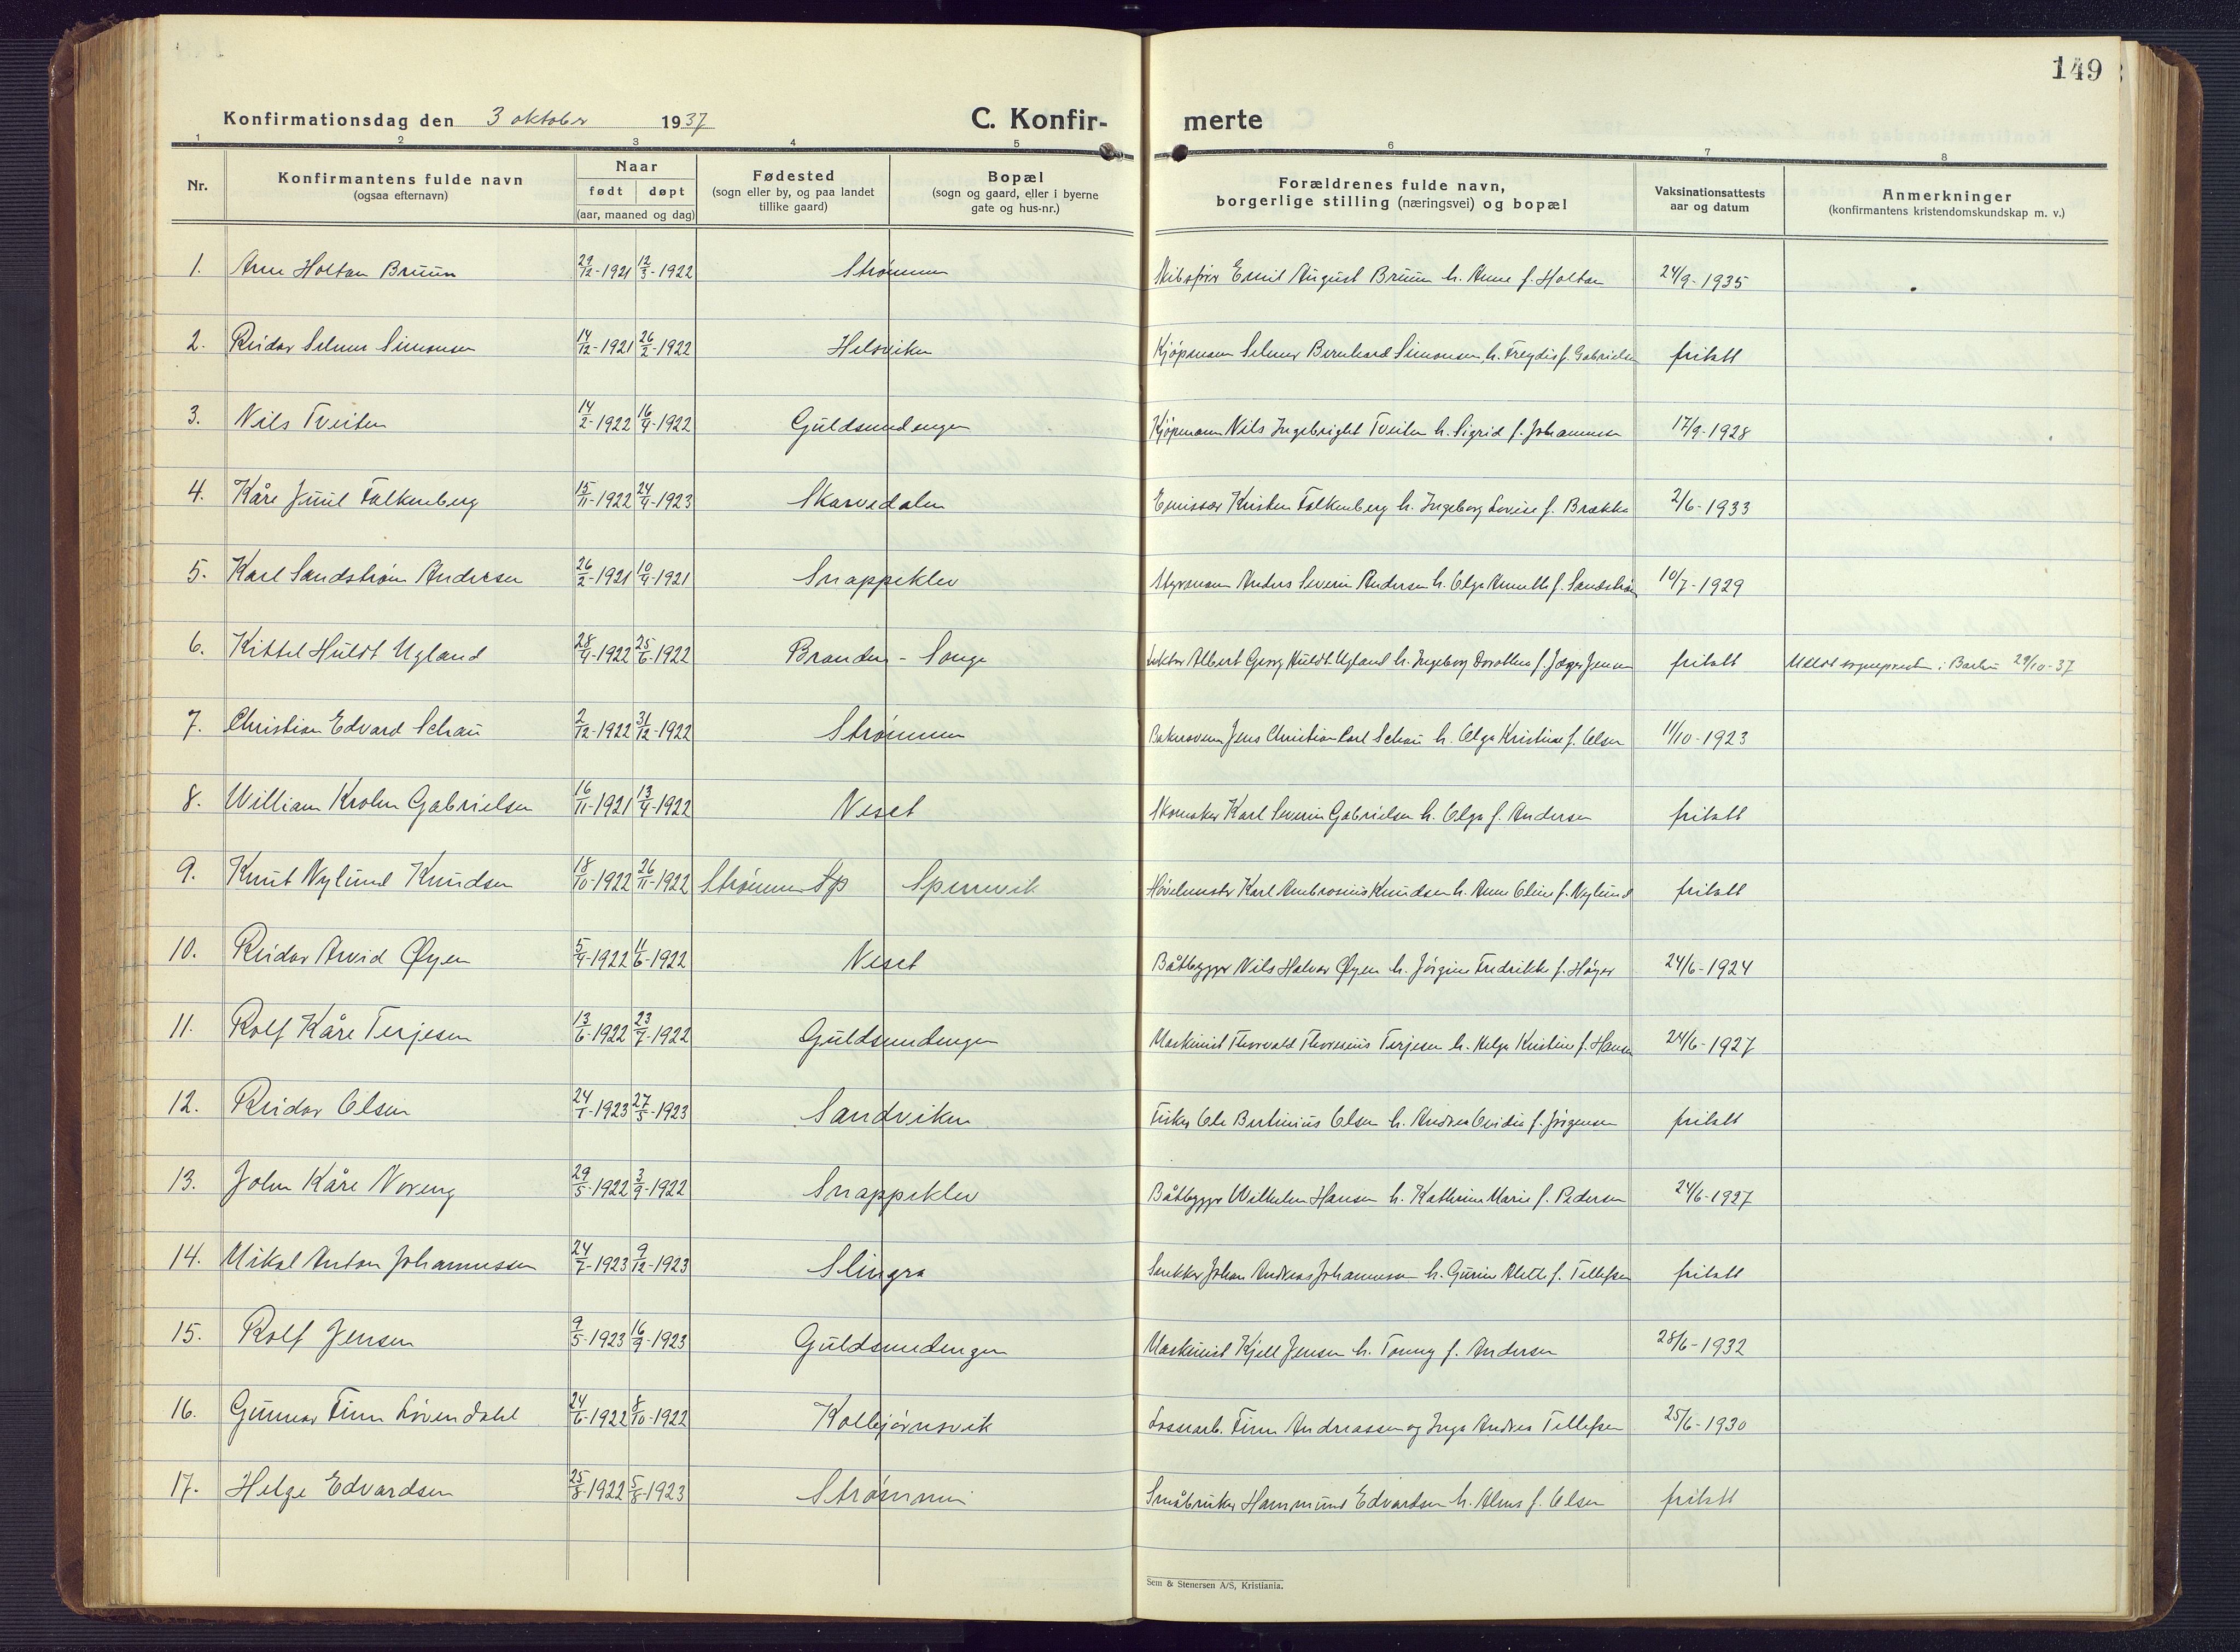 149
Konfirmationsdag den 3 oktober 1937
C. Konfir-
merte
1 2 3 4 5 6 7 8
Nr.
Konfirmantens fulde navn
(ogsaa efternavn)
Naar
født døpt
(aar, maaned og dag)
Fødested
(sogn eller by, og paa landet
tillike gaard)
Bopæl
(sogn og gaard, eller i byerne
gate og hus-nr.)
Forældrenes fulde navn,
borgerlige stilling (næringsvei) og bopæl
Vaksinationsattests
aar og datum
Anmerkninger
(konfirmantens kristendomskundskap m. v.)
1. Arne Holtan Bruun 29/12-1921 12/3-1922 Strømmen Skibsfører Emil August Bruun h. Anne f. Holtan 24/9-1935
2. Reidar Selmer Simonsen 14/12-1921 26/2-1922 Hilsviken Kjøpmann Selmer Bernhard Simonsen h. Freydis f. Gabrielsen fritatt
3. Nils Tveiten 14/2-1922 16/4-1922 Guldsmedengen Kjøpmann Nils Ingebright Tveiten h. Sigrid f. Johannesen 17/9-1928
4. Kåre Juul Falkenberg 15/11-1922 24/4-1923 Skarvedalen Emissær Kristen Falkenberg h. Ingeborg Lovise f. Brække 2/6-1933
5. Karl Sandstrøm Andersen 26/2-1921 10/4-1921 Snappeklev Styrmann Anders Severin Andersen h. Olga Annette f. Sandstrøm 10/7-1929
6. Kittel Huldt Ugland 28/4-1922 25/6-1922 Branden - Songe Lektor Albert Georg Huldt Ugland h. Ingeborg Dorothea f. Jæger Jensen fritatt Meldt sogneprest i Barbu 29/10-37
7. Christian Edvard Schau 2/12-1922 31/12-1922 Strømmen Bakersvenn Jens Christian Carl Schau h. Olga Kristine f. Olsen 11/10-1923
8. William Krohn Gabrielsen 16/11-1921 13/4-1922 Neset Skomaker Karl Severin Gabrielsen h. Olga f. Andersen fritatt
9. Knut Nylund Knudsen 18/10-1922 26/11-1922 Strømmen Sp Spervik Høvelmester Karl Ambrosius Knudsen h. Anne Oline f. Nylund fritatt
10. Reidar Arvid Øyen 5/4-1922 11/6-1922 Neset Båtbygger Nils Halvor Øyen h. Jørgine Fredrikke f. Høyer 24/6-1924
11. Rolf Kåre Terjesen 13/6-1922 23/7-1922 Guldsmedengen Maskinist Thorvald Thoresius Terjesen h. Helga Kristine f. Hansen 24/6-1927
12. Reidar Olsen 24/1-1923 27/5-1923 Sandviken Fisker Ole Bertinius Olsen h. Andrea Ovidia f. Jørgensen fritatt
13. John Kåre Noreng 29/5-1922 3/9-1922 Snappeklev Båtbygger Wilhelm Hansen h. Kathrine Marie f. Pedersen 24/6-1927
14. Mikal Anton Johannessen 24/7-1923 9/12-1923 Slingra Snekker Johan Andreas Johannessen h. Gurine Alette f. Tellefsen fritatt
15. Rolf Jensen 9/5-1923 16/9-1923 Guldsmedengen Maskinist Kjell Jensen h. Tonny f. Andersen 28/6-1932
16. Gunnar Finn Løvendahl 24/6-1922 8/10-1922 Kolbjørnsvik Lossearb. Finn Andreassen og Inga Andrea Tellefsen 25/6-1930
17. Helge Edvardsen 25/8-1922 5/8-1923 Strømmen Småbruker Hammund Edvardsen h. Alma f. Olsen fritatt
Sem & Stenersen A/S, Kristiania.